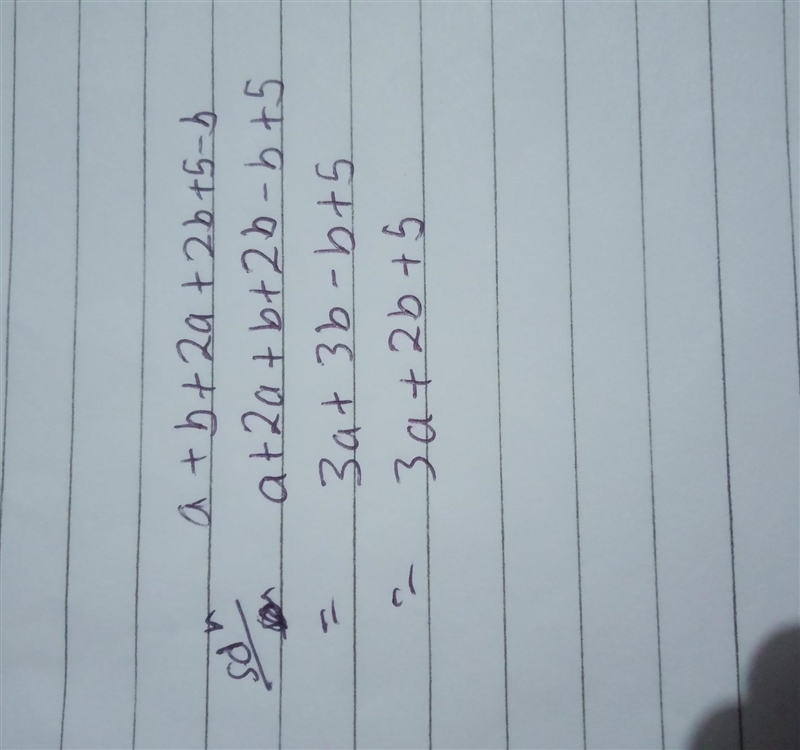 a + b + 2a + 2b + 5 - b
Solⁿ a + 2a + b + 2b - b + 5
= 3a + 3b - b + 5
= 3a + 2b + 5